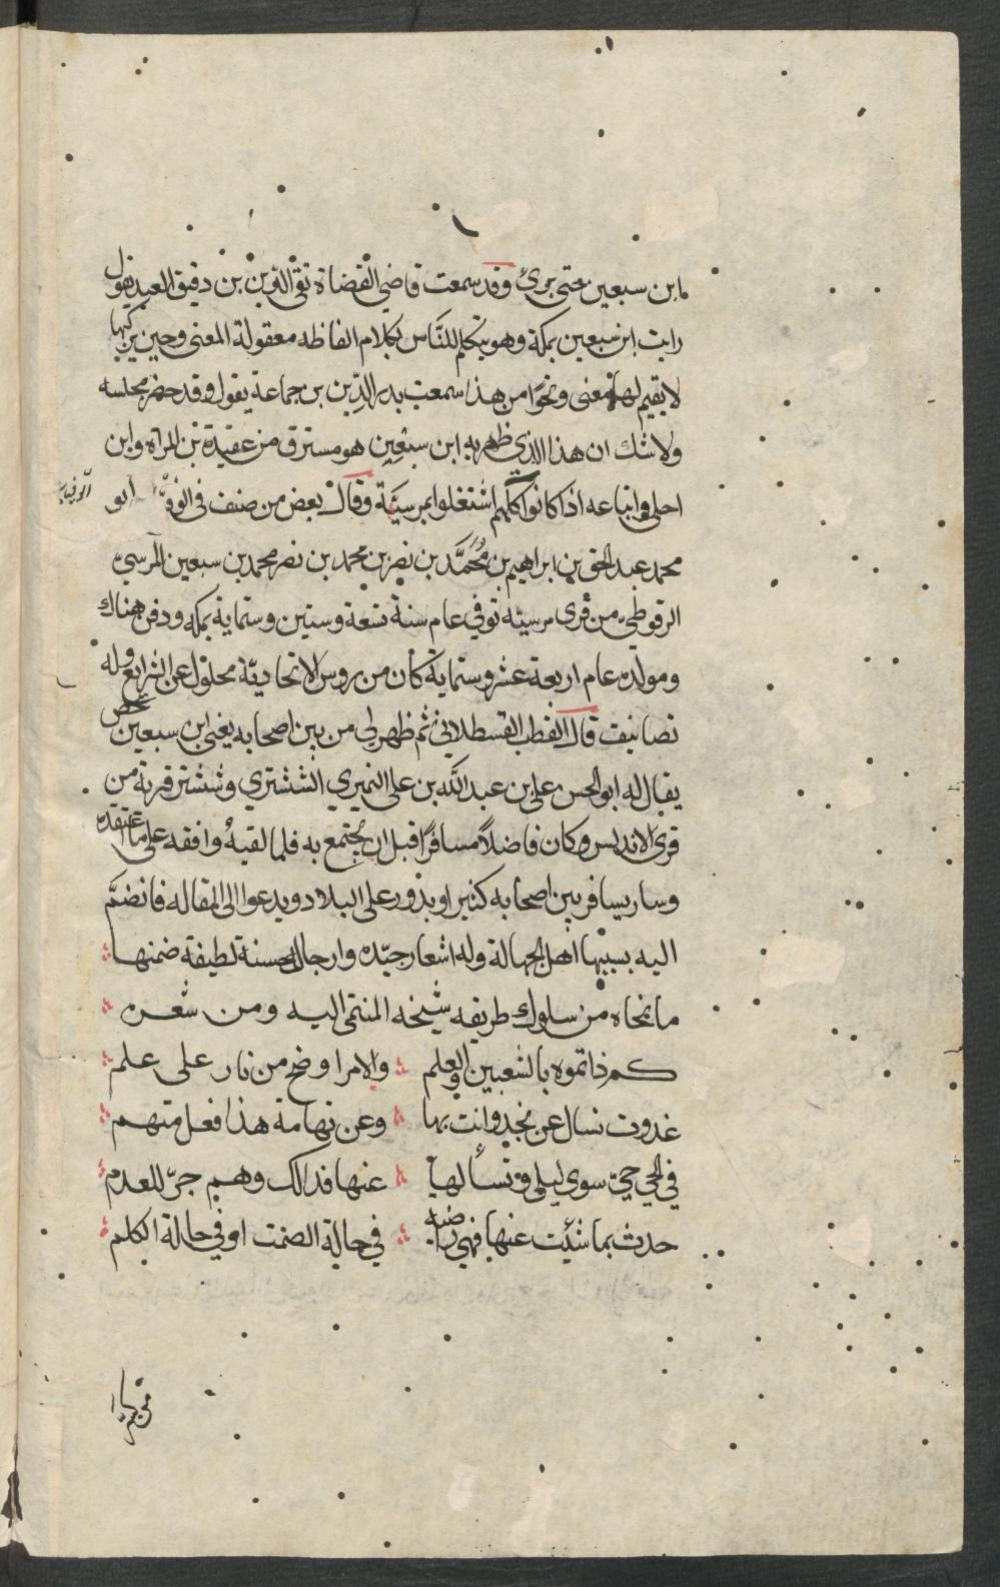 مابن سبعين حتى برئ وقد سمعت قاضي القضاة تقي الدين بن دقيق العيد يقول
رايت ابن سبعين بمكة وهو يتكلم للناس بكلام الفاظه معقولة المعنى وحين يركبها
لا يقيم لها معنى ونحوا من هذا سمعت بدر الدين بن جماعة يقول وقد حضر مجلسه
ولا شك ان هذا الذي ظهر به ابن سبعين هو مسترق من عقيدة بن المراه وابن
احلى واتباعه اذ كانوا كلهم اشتغلوا بمرسية وقال بعض من صنف في ابو
محمد عبد الحق بن ابراهيم بن محمد بن نصر بن محمد بن نصر محمد بن سبعين المرسي
الرقوطي من قرى مرسيه توفي عام سنة تسعة وستين وستماية بمكه ودفن هناك
ومولده عام اربعة عشر وستماية كان من روس الاتحادية محلول عن الشرايع وله
تصانيف قال القطب القسطلاني ثم ظهر لي من بين اصحابه يعني ابن سبعين شخص
يقال له ابو الحسن علي بن عبد الله بن علي النميري الششتري وششتر قرية من
قرى الاندلس وكان فاضلا مسافرا قبل ان يجتمع به فلما لقيه وافقه على ما اعتقده
وسار يسافر بين اصحابه كثيرا ويدور على البلاد ويدعوا الى المقاله فانضم
اليه بسببها اهل الجهالة وله اشعار جيده وازجال حسنة لطيفة ضمنها
ما نحاه من سلوك طريقه شيخه المنتمى اليه ومن شعره
كم ذا تموه بالشعبين والعلم والامر اوضح من نار على علم
غدوت تسال عن نجد وانت بها وعن تهامة هذا فعل متهم
في الحي حي سوى ليلى فتسألها عنها فدالك وهم جر للعدم
حدث بما شئت عنها فهي راضيه في حالة الصمت او في حالة الكلم